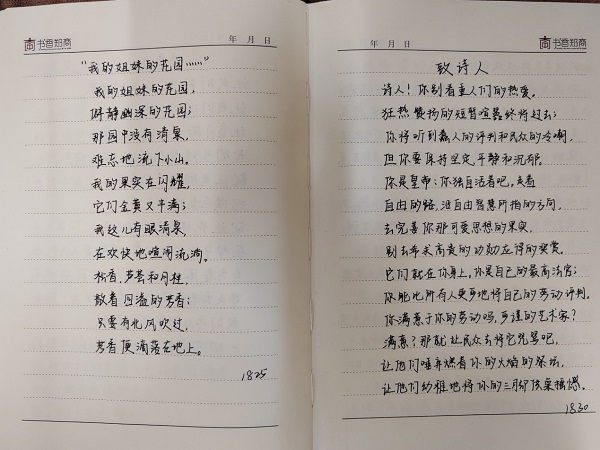 书香知商
年 月 日
“我的姐妹的花园……”
我的姐妹的花园，
僻静幽深的花园；
那园中没有清泉，
难忘地流下小山。
我的果实在闪耀，
它们金黄又丰满；
我这儿有眼清泉，
在欢快地喧闹流淌。
松香，芦荟和月桂，
散着四溢的芳香；
只要有北风吹过，
芳香便滴落在地上。
1825
年 月 日
书香知商
致诗人
诗人！你别看重人们的热爱。
狂热赞扬的短暂喧嚣终将过去；
你将听到蠢人的评判和民众的冷嘲，
但你要保持坚定、平静和沉郁。
你是皇帝：你独自活着吧。走着
自由的路，沿自由智慧所指的方向，
去完善你那可爱思想的果实，
别去希求高贵的功勋应得的奖赏。
它们就在你身上。你是自己的最高法官；
你能比所有人更严地将自己的劳动评判。
你满意于你的劳动吗，严谨的艺术家？
满意？那就让民众去将它咒骂吧，
让他们唾弃燃着你的火焰的祭坛，
让他们幼稚地将你的三脚供桌摇撼。
1830